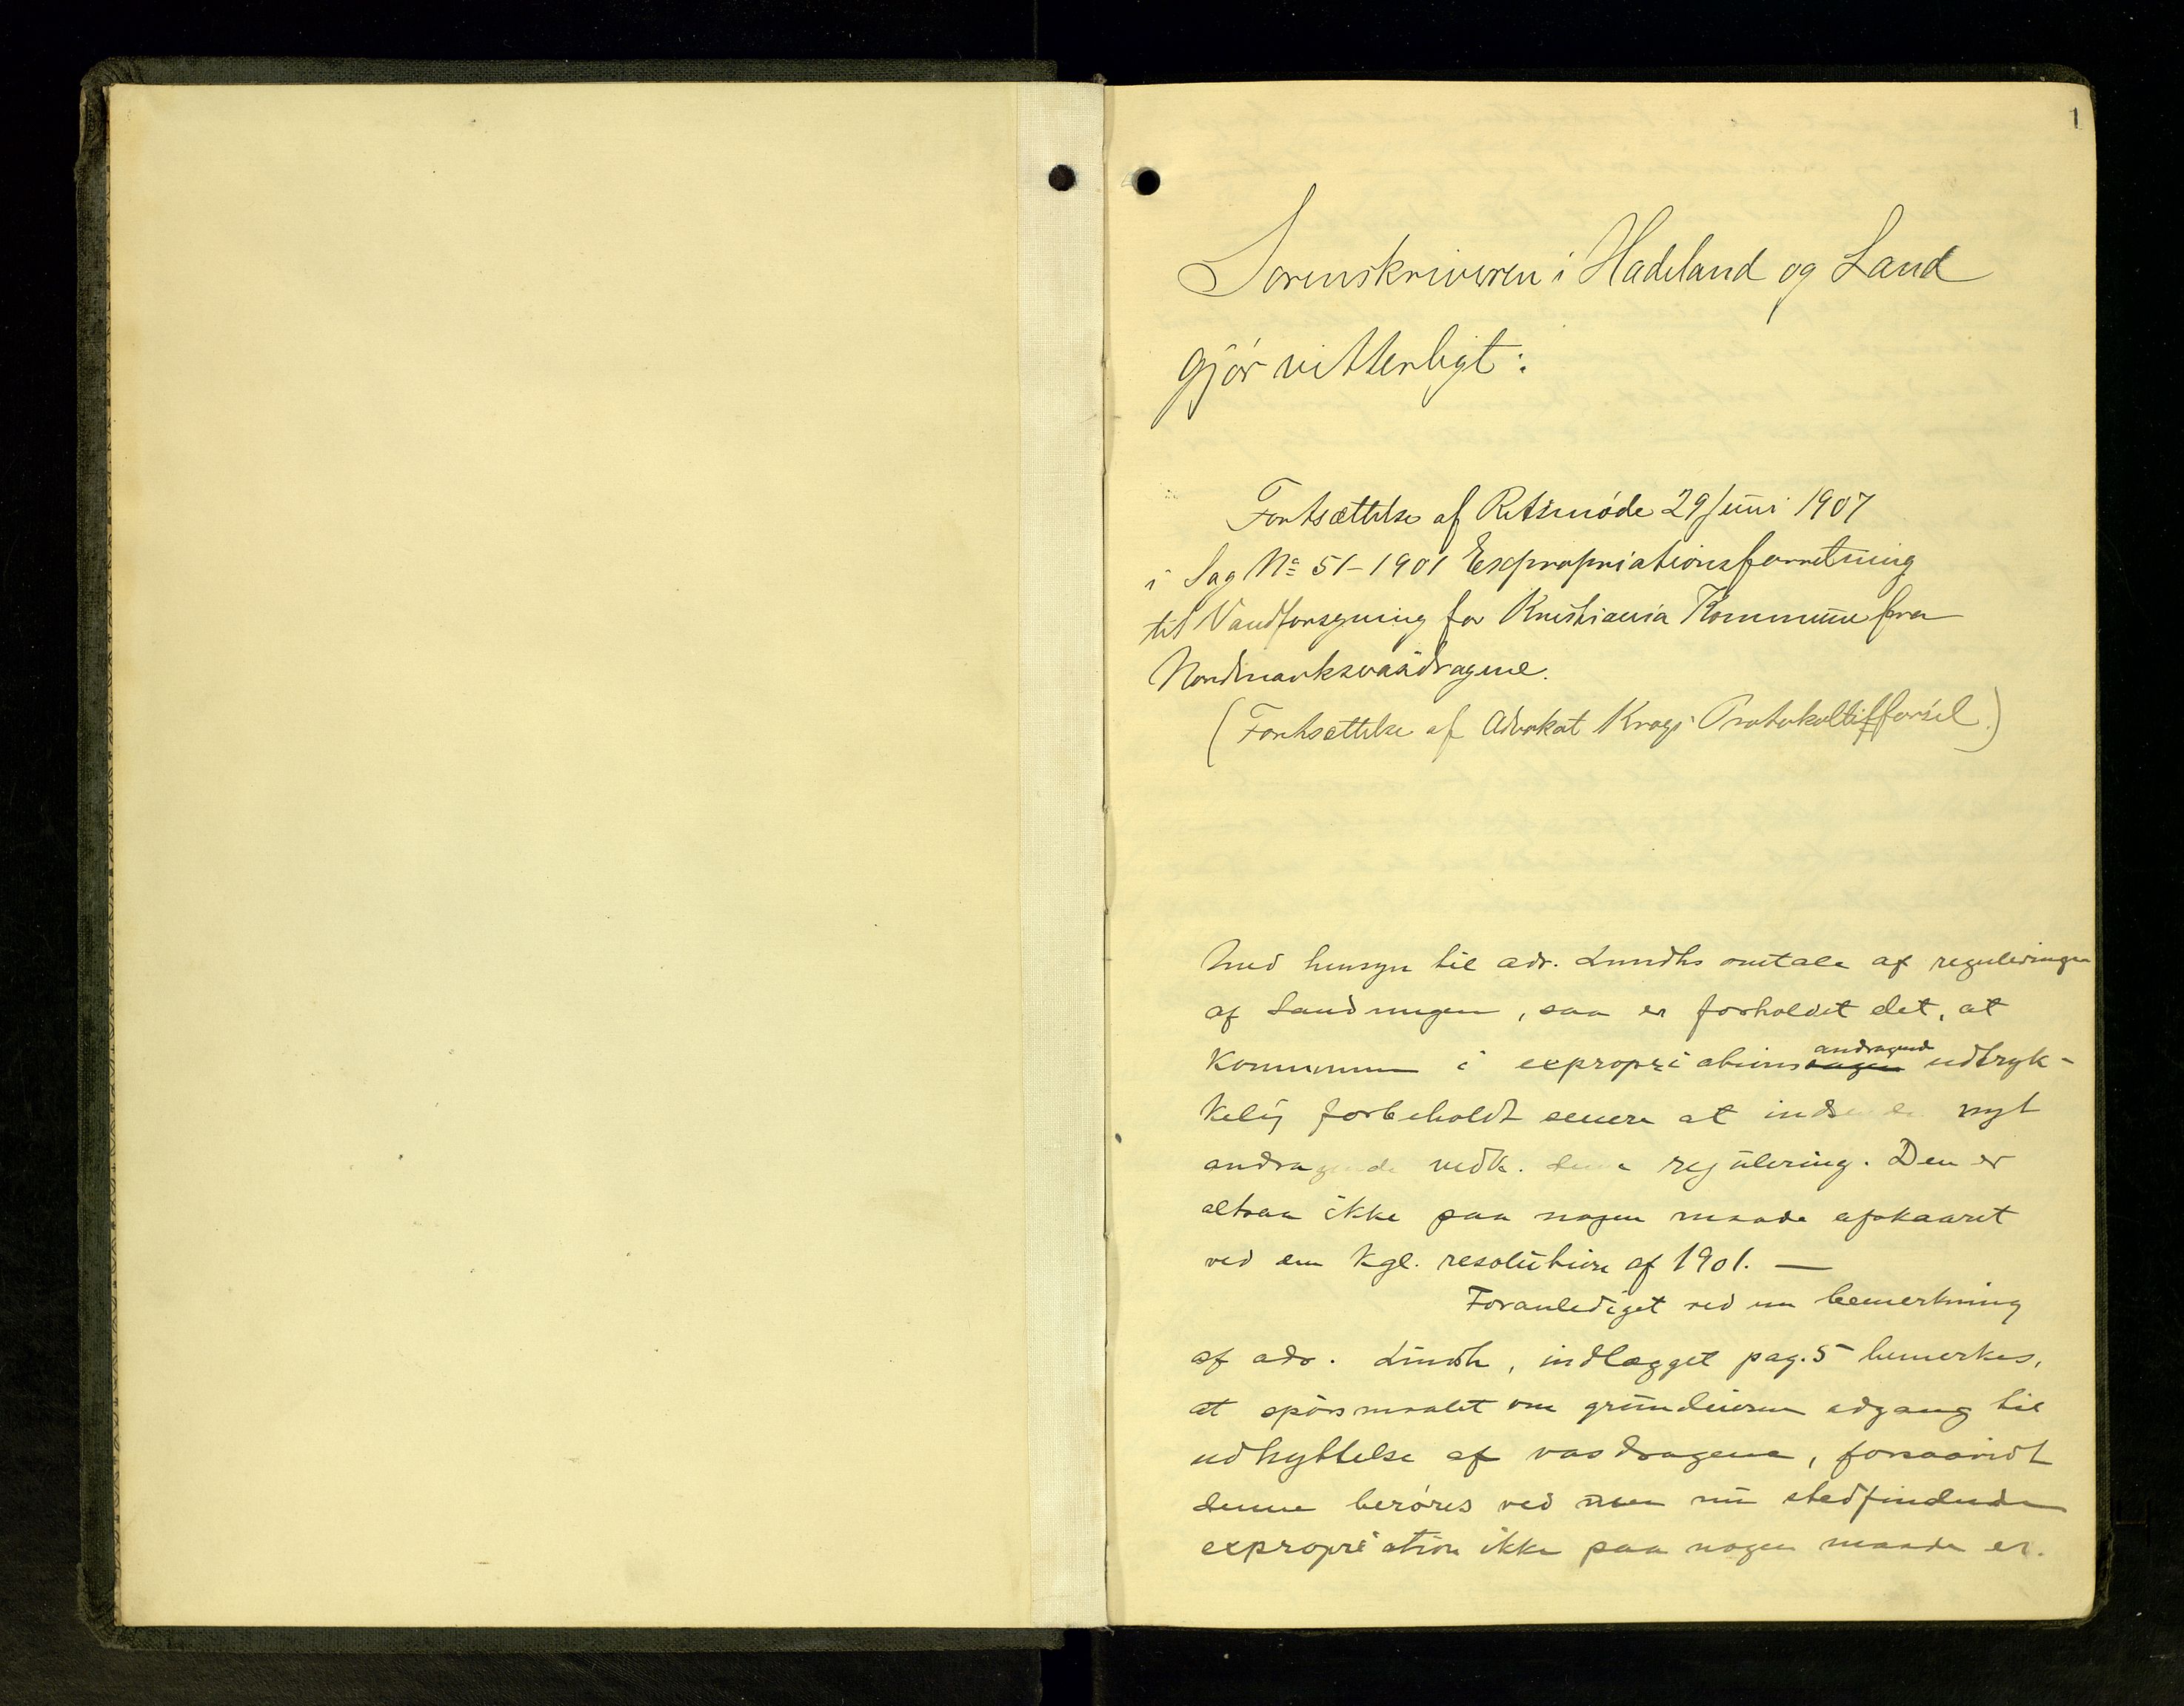 1
Sorenskriveren i Hadeland og Land
gjør vitterligt:
Fortsættelse af Retsmøde 29 Juni 1907
i Sag No 51-1901 Expropriationsforretning
til Vandforsyning for Kristiania Kommune fra
Nordmarksvasdragene.
(Fortsættelse af Advokat Krags Protokoltilførsel.)
Med hensyn til adv. Lundhs omtale af reguleringen
af Sandungen, saa er forholdet det, at
Kommunen i expropriationsandragende udtryk-
kelig forbeholdt senere at indsende nyt
andragende vedk. denne regulering. Den er
altsaa ikke paa nogen maade afskaaret
ved en kgl. resolution af 1901. —
Foranlediget ved en bemerkning
af adv. Lundh, indlægget pag. 5 bemerkes,
at spørsmaalet om grundeieren adgang til
udnyttelse af vasdragene, forsaavidt
denne berøres ved nu stedfindende
expropriation ikke paa nogen maade er.